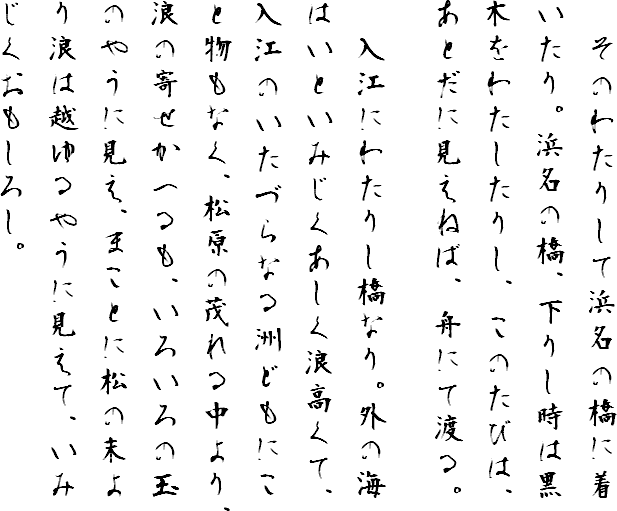 そのわたりして浜名の橋に着
いたり。浜名の橋、下りし時は黒
木をわたしたりし、このたびは、
あとだに見えねば、舟にて渡る。
入江にわたりし橋なり。外の海
はいといみじくあしく浪高くて、
入江のいたづらなる洲どもにこ
と物もなく、松原の茂れる中より、
浪の寄せかへるも、いろいろの玉
のやうに見え、まことに松の末よ
り浪は越ゆるやうに見えて、いみ
じくおもしろし。